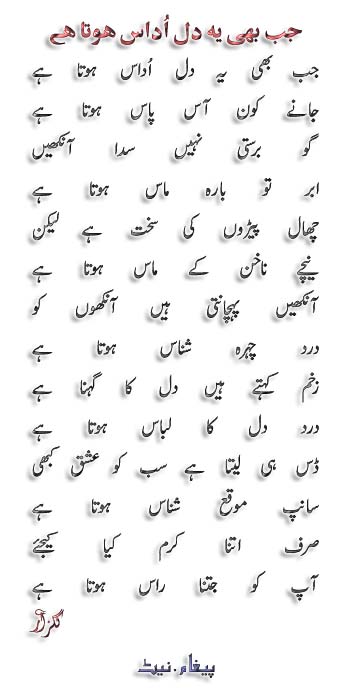 جب بھی یہ دل اُداس ہوتا ہے
جب بھی یہ دل اُداس ہوتا ہے
جانے کون آس پاس ہوتا ہے
گو برستی نہیں سدا آنکھیں
ابر تو بارہ ماس ہوتا ہے
چھال پیڑوں کی سخت ہے لیکن
نیچے ناخن کے ماس ہوتا ہے
آنکھیں پہچانتی ہیں آنکھوں کو
درد چہرہ شناس ہوتا ہے
زخم کہتے ہیں دل کا گہنا ہے
درد دل کا لباس ہوتا ہے
ڈس ہی لیتا ہے سب کو عشق کبھی
سانپ موقع شناس ہوتا ہے
صرف اتنا کرم کیا کیجئے
آپ کو جتنا راس ہوتا ہے
گلزار
پیغام.نیٹ